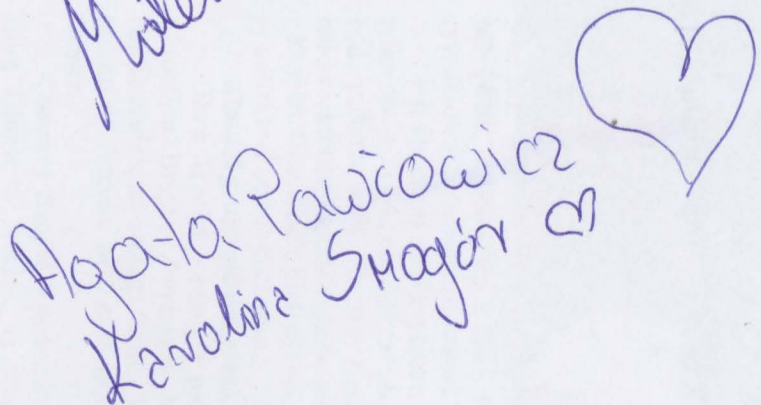 Agata Pawłowicz
Karolina Smogór